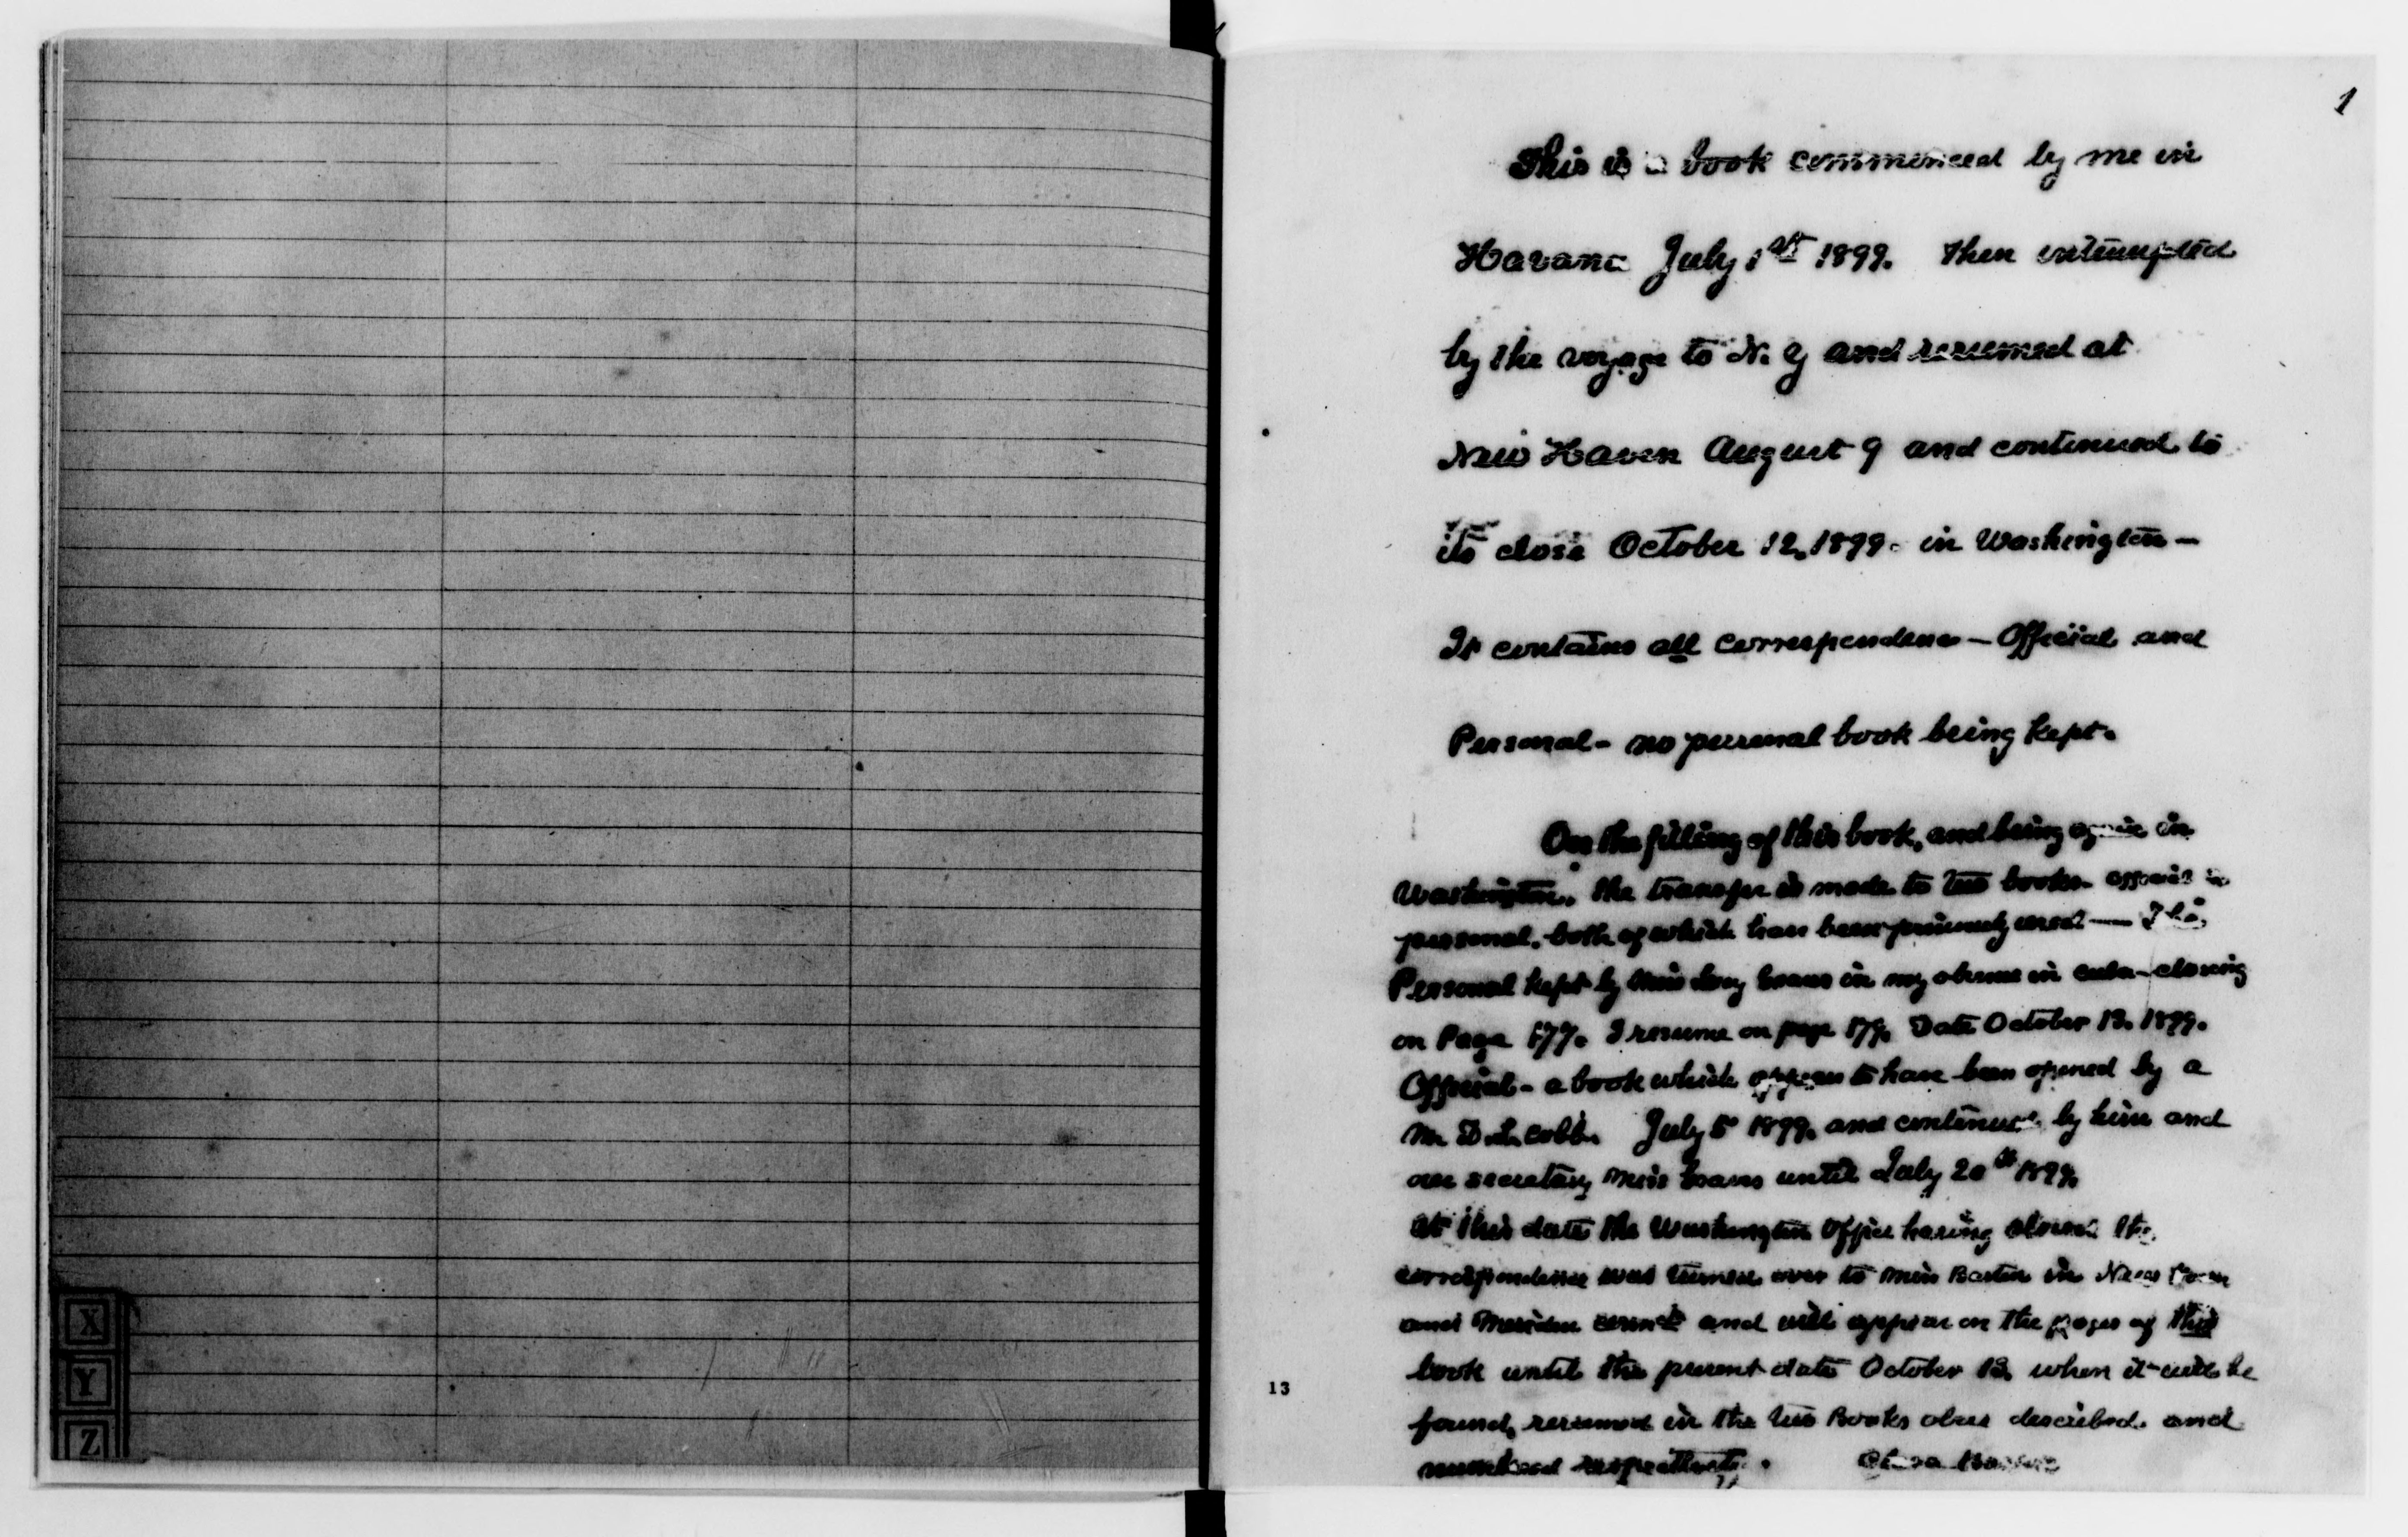 X
Y
Z
1
This is a book commenced by me in
Havana July 1st 1899. Then interrupted
by the voyage to N. Y and resumed at
New Haven August 9 and continued to
its close October 12, 1899. in Washington —
It contains all correspondence — Official and
Personal - no personal book being kept.
On the filling of this book, and being again in
Washington, the transfer is made to two books - official &
personal, both of which have been previously used — The
Personal kept by Miss Lucy Graves in my absence in Cuba - closing
on Page 177. I resume on page 179. Date October 13. 1899.
Official - a book which appears to have been opened by a
Mr D. L. Cobb. July 5 1899, and continued by him and
our secretary Miss Graves until July 20th 1899.
At this date the Washington Office having closed the
correspondence was turned over to Miss Barton in New Haven
and Meriden and will appear on the pages of this
book until the present date October 13, when it will be
found, resumed in the two Books above described. and
numbered respectively. Clara Barton
13